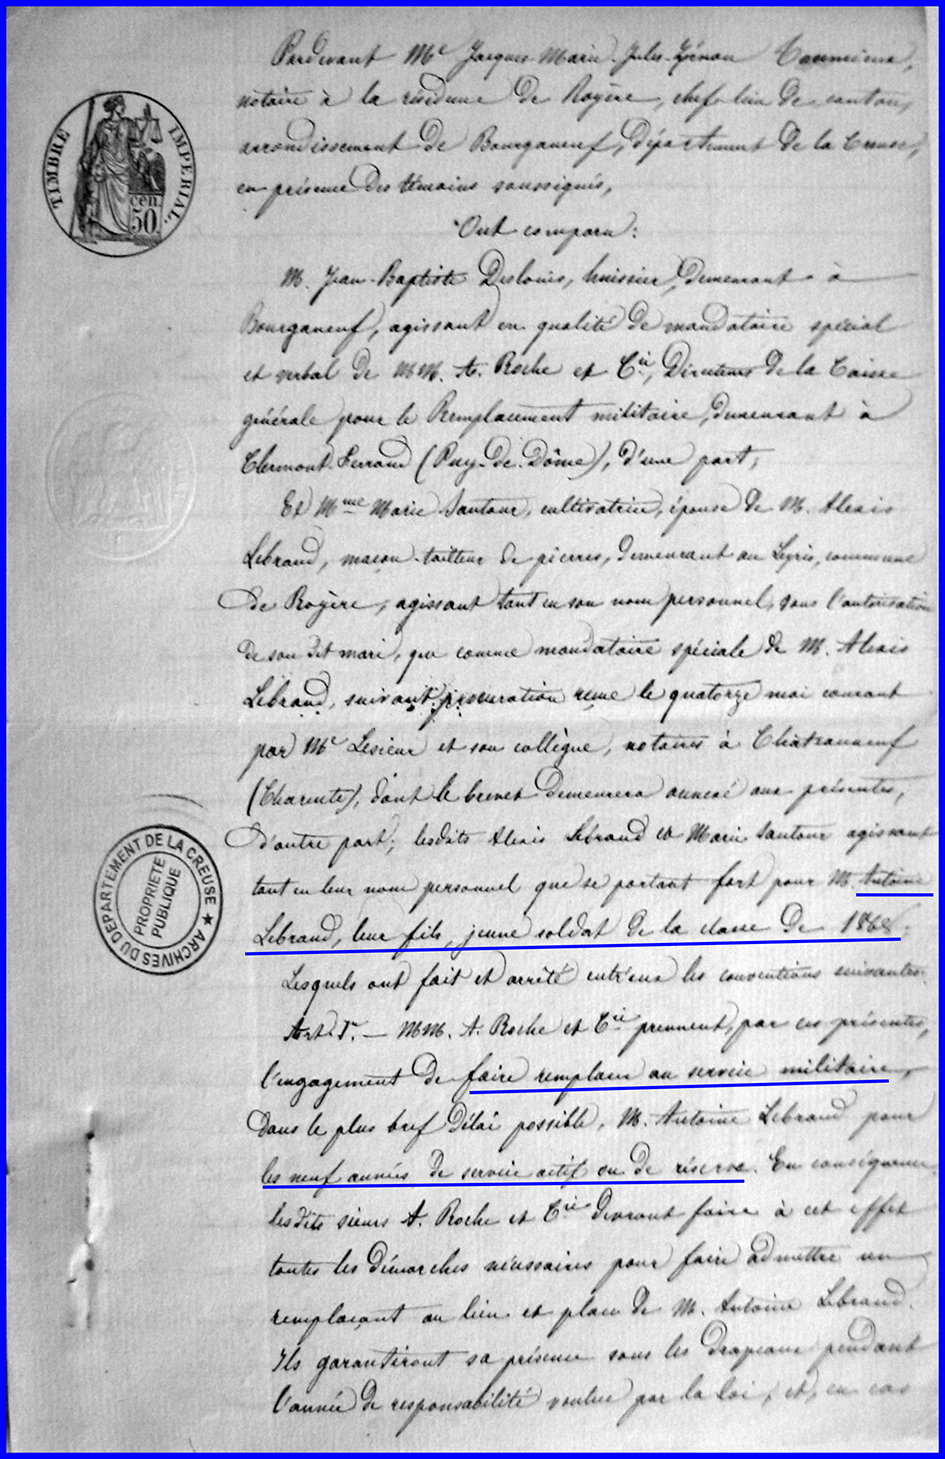 TIMBRE IMPERIAL.
cen.
50
Pardevant Me Jacques-Marie-Jules-Zénon
notaire à la résidence de Royère, chef-lieu de canton,
arrondissement de Bourganeuf, département de la Creuse,
en présence des témoins soussignés,
Ont comparu:
M. Jean-Baptiste Deslouis, huissier, demeurant à
Bourganeuf, agissant en qualité de mandataire spécial
et verbal de MM. A. Roche et Cie, Directeurs de la Caisse
générale pour le Remplacement militaire, demeurant à
Clermont-Ferrand (Puy-de-Dôme), d'une part,
Et Mme Marie Santour, cultivatrice, épouse de M. Alexis
Lebraud, maçon-tailleur de pierres, demeurant au Leyris, commune
de Royère, agissant tant en son nom personnel, sous l'autorisation
de son dit mari, que comme mandataire spéciale de M. Alexis
Lebraud, suivant procuration reçue le quatorze mai courant
par Me Lesieur et son collègue, notaires à Châteauneuf
(Charente), dont le brevet demeurera annexé aux présentes,
d'autre part; lesdits Alexis Lebraud et Marie Santour agissant
tant en leur nom personnel que se portant fort pour M. Antoine
Lebraud, leur fils, jeune soldat de la classe de 1868;
ARCHIVES DU DEPARTEMENT DE LA CREUSE ★
PROPRIETE
PUBLIQUE
Lesquels ont fait et arrêté entr'eux les conventions suivantes:
Art. 1er — MM. A. Roche et Cie prennent, par ces présentes,
l'engagement de faire remplacer au service militaire,
dans le plus bref délai possible, M. Antoine Lebraud pour
les neuf années de service actif ou de réserve. En conséquence
lesdits sieurs A. Roche et Cie devront faire à cet effet
toutes les démarches nécessaires pour faire admettre un
remplaçant au lieu et place de M. Antoine Lebraud.
Ils garantiront sa présence sous les drapeaux pendant
l'année de responsabilité voulue par la loi, et, en cas